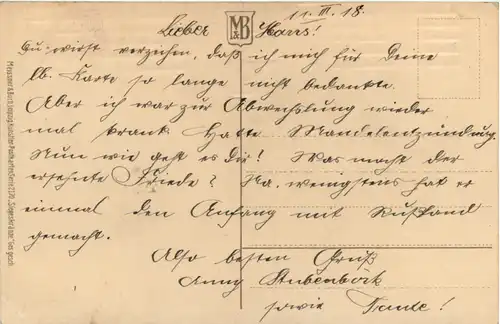 11. III. 18.
Lieber Harrs!
Du wirst verzeihen, daß ich mich für Deine
lb. Karte so lange nicht bedankte.
Aber ich war zur Abwechslung wieder
mal krank. Hatte Mandelentzündung.
Nun wie geht es Dir! Was macht der
ersehnte Friede? Na, wenigstens hat er
einmal den Anfang mit Rußland
gemacht.
Also besten Gruß
Anny Stubenböck
sowie Tante!
M&B
Meissner & Buch, Leipzig Künstler-Postkarten Serie